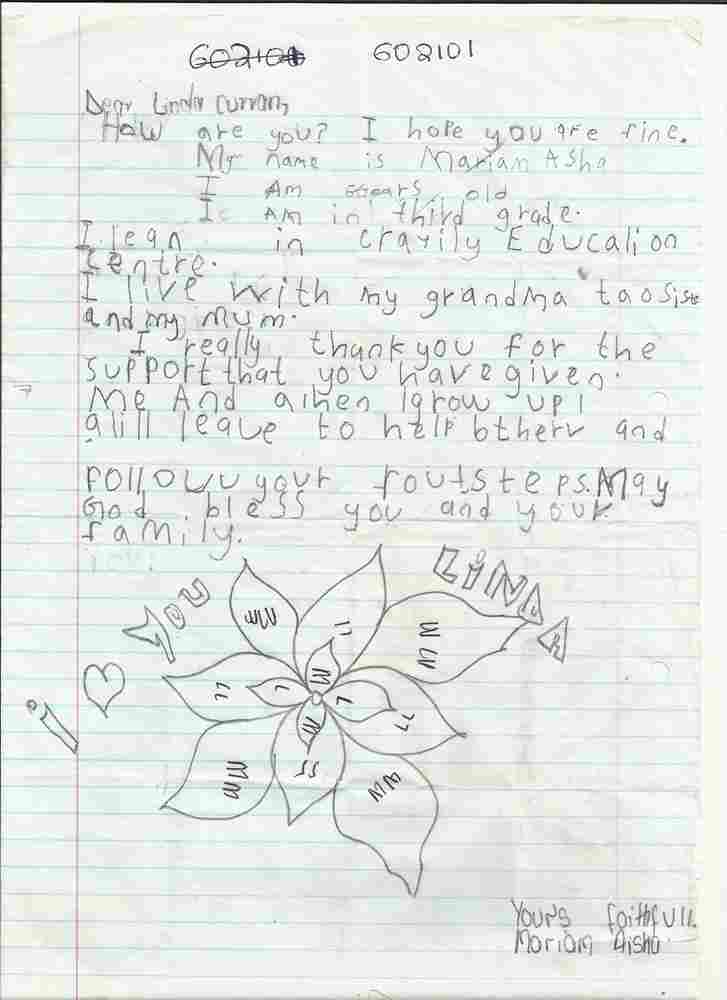 602101 602101
Dear Linda Curran,
How are you? I hope you are fine.
My name is Mariam Asha
I Am years old
I Am in third grade.
I lean in Education
Centre.
I live with my grandma
and my mum.
I really thank you for the
support that you have given.
Me And grow up I
to help and
follow your May
God bless you and your
family.
i ♡ You LINDA
MM LL MM
M
LL L L LL
M
MM LL MM
Yours faithfull.
Mariam Aisha